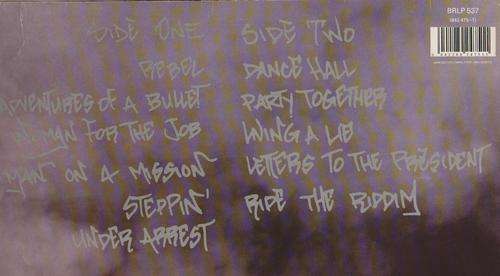 SIDE ONE
REBEL
ADVENTURES OF A BULLET
WOMAN FOR THE JOB
MAN ON A MISSION
STEPPIN'
UNDER ARREST
SIDE TWO
DANCE HALL
PARTY TOGETHER
WING A LIB
LETTERS TO THE PRESIDENT
RIDE THE RIDDIM
BRLP 537